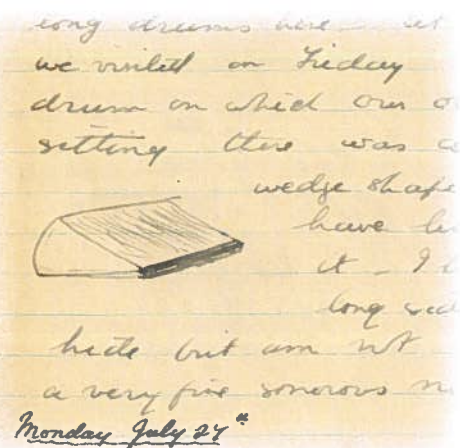 long drums here - at
we visited on Friday
drum on which our o
setting there was a
wedge shape
have be
it - I
long
hide but am not
a very fine sonorous n
Monday July 27th